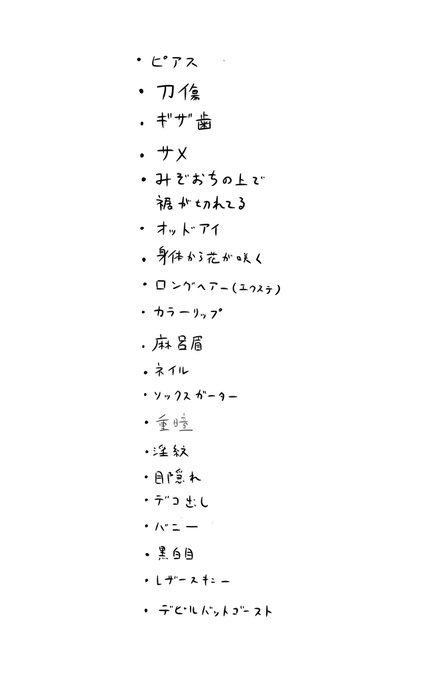 ・ピアス
・刀傷
・ギザ歯
・サメ
・みぞおちの上で
裾が切れてる
・オッドアイ
・身体から花が咲く
・ロングヘアー(エクステ)
・カラーリップ
・麻呂眉
・ネイル
・ソックスガーター
・重瞳
・淫紋
・目隠れ
・デコ出し
・バニー
・黒白目
・レザースキニー
・デビルバットゴースト